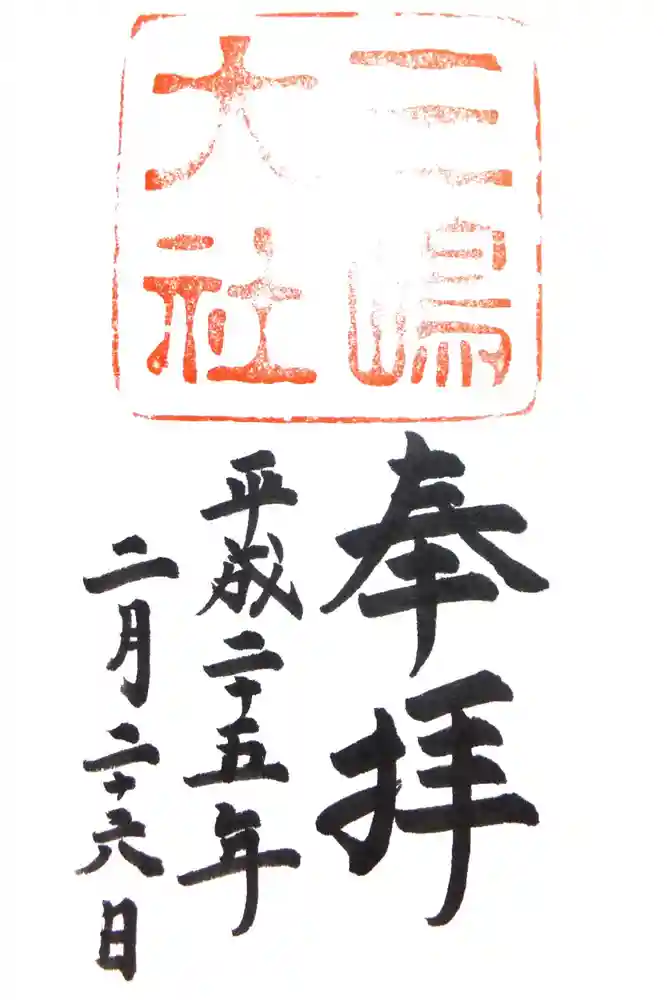 三嶋
大社
奉拝
平成二十五年
二月二十六日